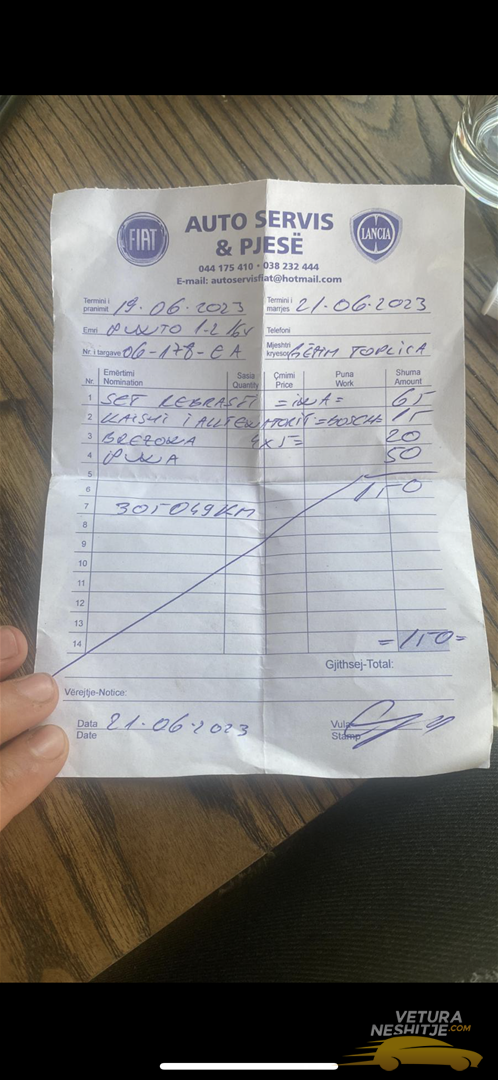 FIAT
AUTO SERVIS
& PJESË
LANCIA
044 175 410 • 038 232 444
E-mail: autoservisfiat@hotmail.com
Termini i pranimit 19.06.2023 Termini i marrjes 21.06.2023
Emri PUNTO 1.2 16V Telefoni
Nr. i targave 06-178-EA Mjeshtri kryesor TOPLICA
Nr. Emërtimi Nomination Sasia Quantity Çmimi Price Puna Work Shuma Amount
1 SET REBRASTI =INA= 65
2 KAISHI I ALLTENATORIT =BOSCH= 15
3 4x5= 20
4 PUNA 50
5
6 150
7 305049KM
8
9
10
11
12
13
14 =150=
Gjithsej-Total:
Vërejtje-Notice:
Data Date 21.06.2023 Vula Stamp
VETURA
NESHITJE.COM